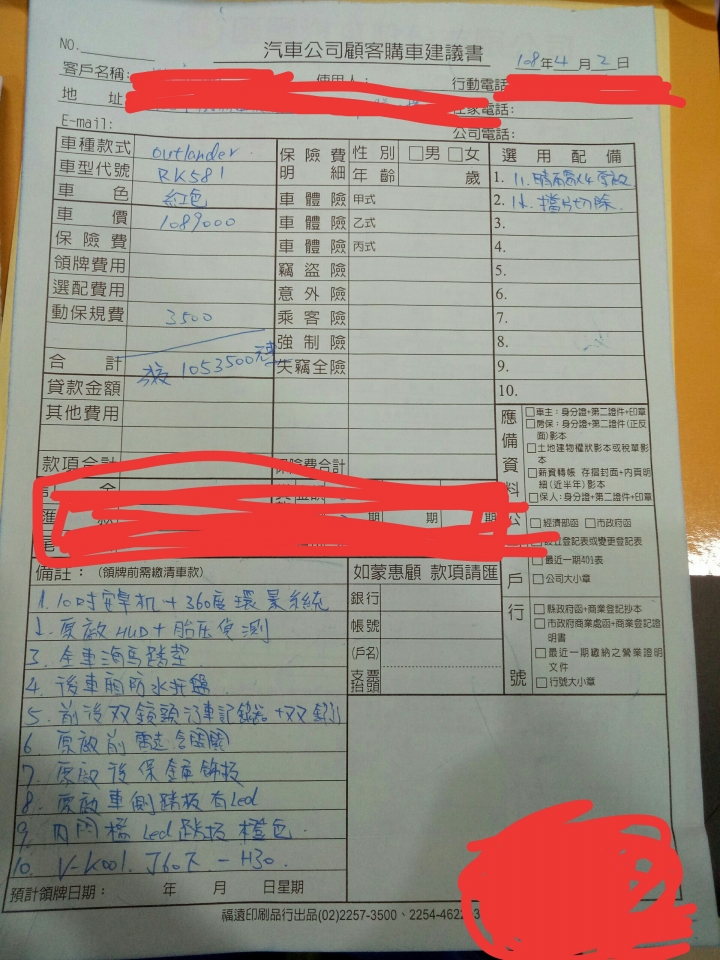 汽車公司顧客購車建議書
NO.
108年4月2日
客戶名稱:
使用人:
行動電話
地址
住家電話:
E-mail:
公司電話:
車種款式 outlander
車型代號 RK581
車色 紅色
車價 1089000
保險費
領牌費用
選配費用
動保規費 3500
合計 1053500元
貸款金額
其他費用
款項合計
保險費明細 性別 □男 □女
年齡 歲
車體險 甲式
車體險 乙式
車體險 丙式
竊盜險
意外險
乘客險
強制險
失竊全險
保險費合計
期 期 期
選用配備
1. 11.晴雨窗X4原廠
2. 12.擋片切除
3.
4.
5.
6.
7.
8.
9.
10.
應備資料
□車主:身分證+第二證件+印章
□房保:身分證+第二證件(正反面)影本
□土地建物權狀影本或稅單影本
□薪資轉帳 存摺封面+內頁明細(近半年)影本
□保人:身分證+第二證件+印章
公
□經濟部函 □市政府函
設立登記表或變更登記表
□最近一期401表
戶 □公司大小章
行號
□縣政府函+商業登記抄本
□市政府商業處函+商業登記證明書
□最近一期繳納之營業證明文件
□行號大小章
備註: (領牌前需繳清車款)
1. 10吋安卓机+360度環景系統
2. 原廠HUD+胎压偵測
3. 全車海馬踏墊
4. 後車廂防水托盤
5. 前後双鏡頭行車記錄器
6. 原廠前雷达含開關
7. 原廠後保金屬飾板
8. 原廠車側踏板有Led
9. 內門檻Led踏板橙色
10. V-Kool. J60下-H30.
如蒙惠顧 款項請匯
銀行
帳號
(戶名)
支票抬頭
預計領牌日期: 年 月 日星期
福遠印刷品行出品(02)2257-3500、2254-462